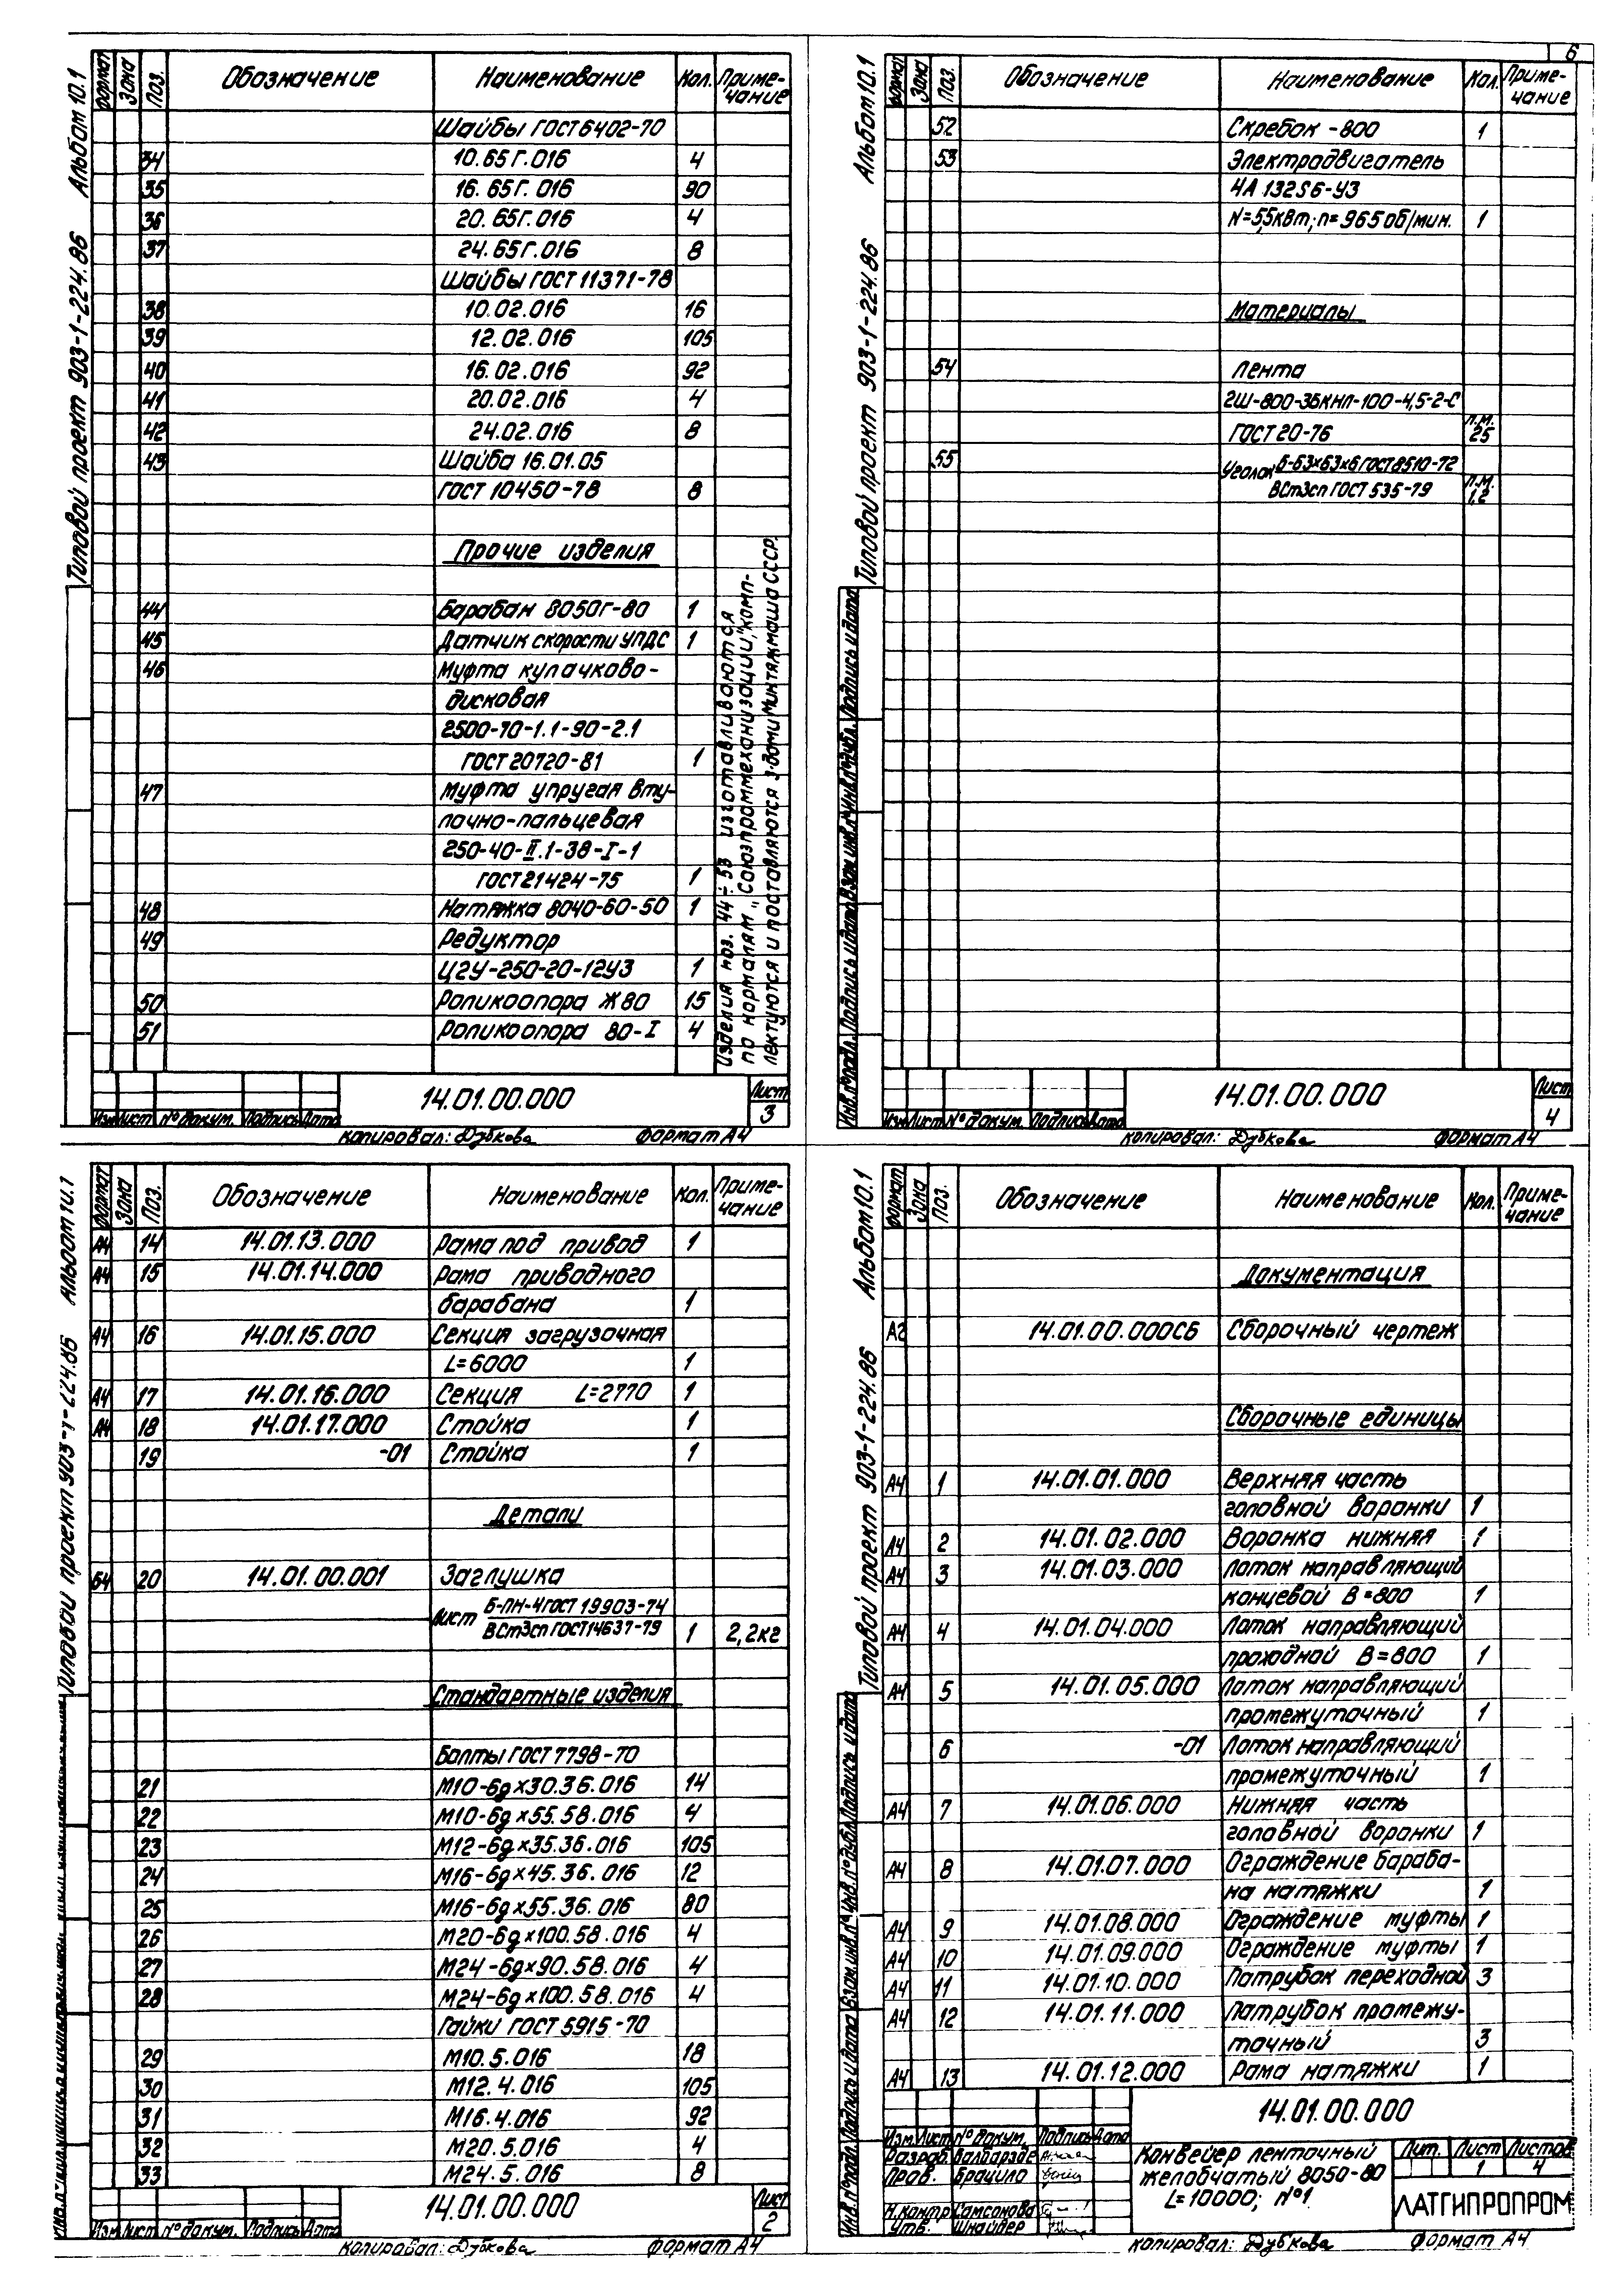 6
Альбом 10.1
Типовой проект 903-1-224.86
Формат Зона Поз. Обозначение Наименование Кол. Приме-
чание
Шайбы ГОСТ 6402-70
34 10.65Г.016 4
35 16.65Г.016 90
36 20.65Г.016 4
37 24.65Г.016 8
Шайбы ГОСТ 11371-78
38 10.02.016 16
39 12.02.016 105
40 16.02.016 92
41 20.02.016 4
42 24.02.016 8
43 Шайба 16.01.05
ГОСТ 10450-78 8
Прочие изделия
44 Барабан 8050Г-80 1
45 Датчик скорости УПДС 1
46 Муфта кулачково-
дисковая
2500-70-1.1-90-2.1
ГОСТ 20720-81 1
47 Муфта упругая вту-
лочно-пальцевая
250-40-II.1-38-I-1
ГОСТ 21424-75 1
48 Натяжка 8040-60-50 1
49 Редуктор
Ц2У-250-20-12У3 1
50 Роликоопора Ж80 15
51 Роликоопора 80-I 4
Изделия поз. 44÷53 изготавливаются
по нормалям „Союзпроммеханизации," комп-
лектуются и поставляются з-дами Минтяжмаша СССР.
Изм. Лист № докум. Подпись Дата
14.01.00.000
Лист
3
Копировал: Дубкова Формат А4
Альбом 10.1
Типовой проект 903-1-224.86
Формат Зона Поз. Обозначение Наименование Кол. Приме-
чание
52 Скребок -800 1
53 Электродвигатель
4А 132S6-У3
N=5,5кВт; n=965об/мин. 1
Материалы
54 Лента
2Ш-800-3БКНЛ-100-4,5-2-С
ГОСТ 20-76 п.м. 25
55 Уголок Б-63х63х6 ГОСТ 8510-72
ВСт3сп ГОСТ 535-79 п.м. 1,2
Инв.№ подл. Подпись и дата Взам.инв.№ Инв.№ дубл. Подпись и дата
Изм. Лист № докум. Подпись Дата
14.01.00.000
Лист
4
Копировал: Дубкова Формат А4
Альбом 10.1
Типовой проект 903-1-224.86
Формат Зона Поз. Обозначение Наименование Кол. Приме-
чание
А4 14 14.01.13.000 Рама под привод 1
А4 15 14.01.14.000 Рама приводного
барабана 1
А4 16 14.01.15.000 Секция загрузочная
L=6000 1
А4 17 14.01.16.000 Секция L=2770 1
А4 18 14.01.17.000 Стойка 1
19 -01 Стойка 1
Детали
Б4 20 14.01.00.001 Заглушка
Лист Б-ПН-4 ГОСТ 19903-74
ВСт3сп ГОСТ 14637-79 1 2,2кг
Стандартные изделия
Болты ГОСТ 7798-70
21 М10-6gх30.36.016 14
22 М10-6gх55.58.016 4
23 М12-6gх35.36.016 105
24 М16-6gх45.36.016 12
25 М16-6gх55.36.016 80
26 М20-6gх100.58.016 4
27 М24-6gх90.58.016 4
28 М24-6gх100.58.016 4
Гайки ГОСТ 5915-70
29 М10.5.016 18
30 М12.4.016 105
31 М16.4.016 92
32 М20.5.016 4
33 М24.5.016 8
Изм. Лист № докум. Подпись Дата
14.01.00.000
Лист
2
Копировал: Дубкова Формат А4
Альбом 10.1
Типовой проект 903-1-224.86
Формат Зона Поз. Обозначение Наименование Кол. Приме-
чание
Документация
А2 14.01.00.000СБ Сборочный чертеж
Сборочные единицы
А4 1 14.01.01.000 Верхняя часть
головной воронки 1
А4 2 14.01.02.000 Воронка нижняя 1
А4 3 14.01.03.000 Лоток направляющий
концевой В=800 1
А4 4 14.01.04.000 Лоток направляющий
проходной В=800 1
А4 5 14.01.05.000 Лоток направляющий
промежуточный 1
6 -01 Лоток направляющий
промежуточный 1
А4 7 14.01.06.000 Нижняя часть
головной воронки 1
А4 8 14.01.07.000 Ограждение бараба-
на натяжки 1
А4 9 14.01.08.000 Ограждение муфты 1
А4 10 14.01.09.000 Ограждение муфты 1
А4 11 14.01.10.000 Патрубок переходной 3
А4 12 14.01.11.000 Патрубок промежу-
точный 3
А4 13 14.01.12.000 Рама натяжки 1
Инв.№ подл. Подпись и дата Взам.инв.№ Инв.№ дубл. Подпись и дата
14.01.00.000
Изм. Лист № докум. Подпись Дата
Разраб. Балбарзде
Пров. Брацило
Н.контр. Самсонова
Утв. Шнайдер
Конвейер ленточный
желобчатый 8050-80
L=10000; №1
Лит. Лист Листов
1 4
ЛАТГИПРОПРОМ
Копировал: Дубкова Формат А4